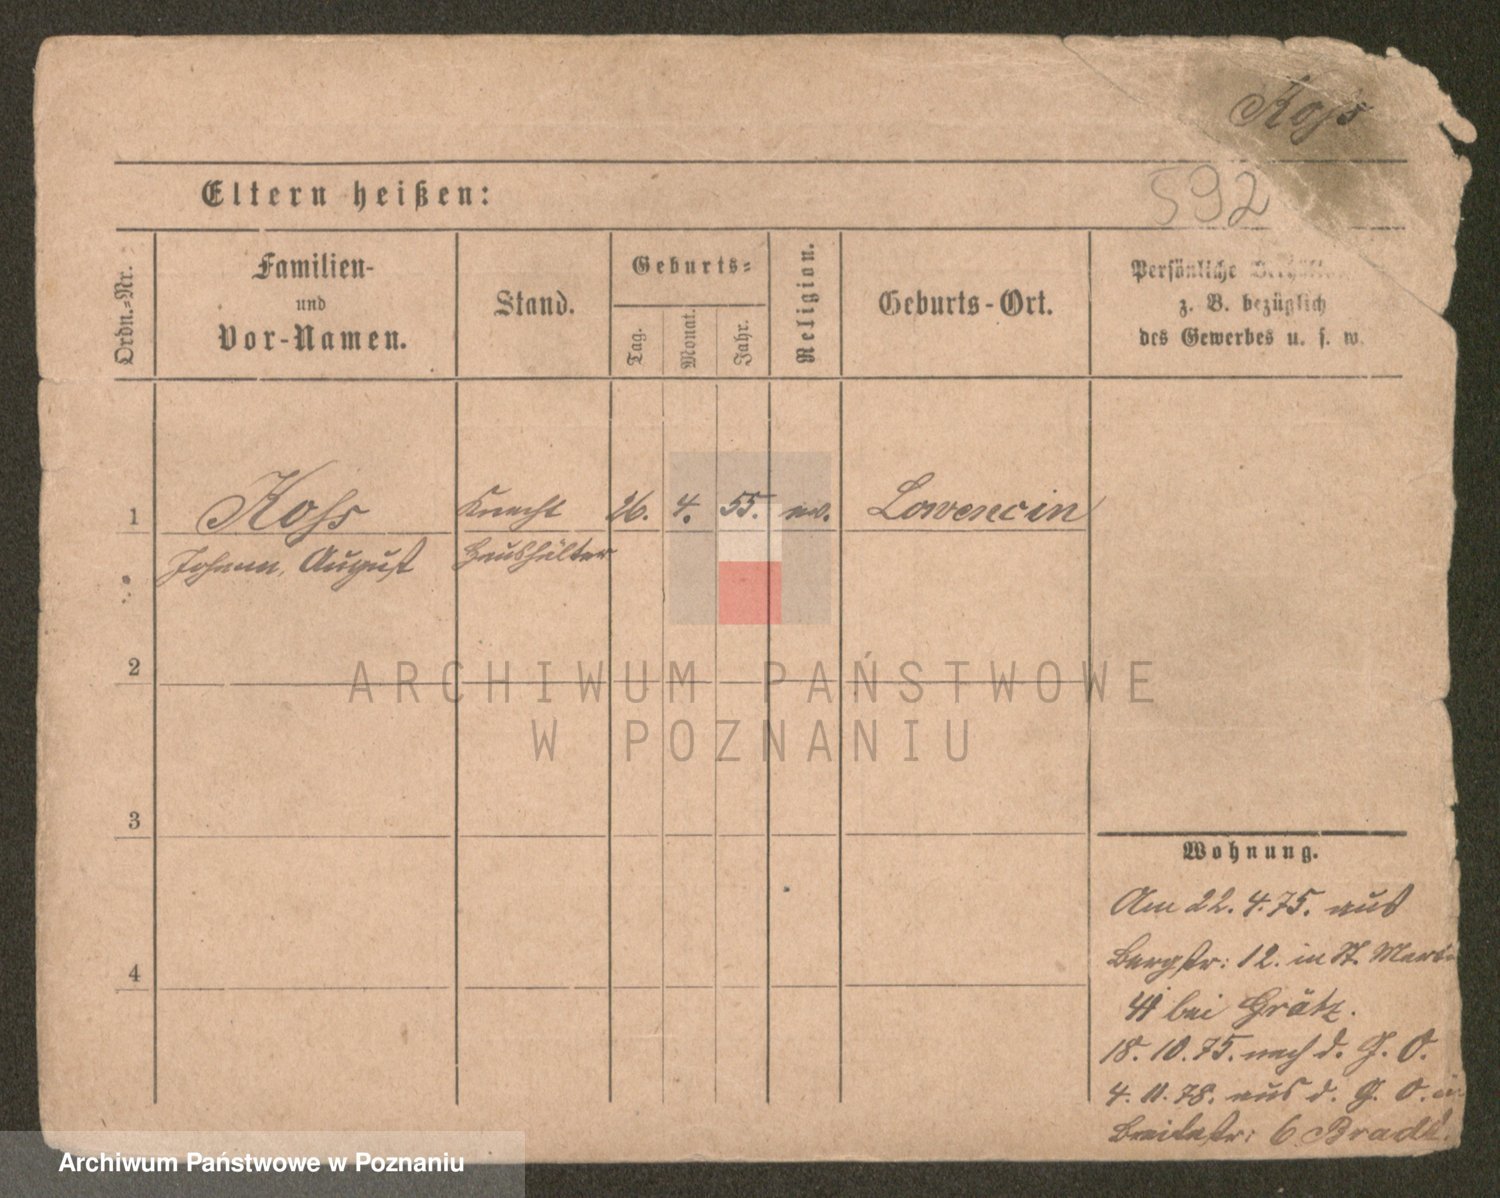 Koss
592
Eltern heißen:
Ordn.-Nr.
Familien-
und
Vor-Namen.
Stand.
Geburts-
Tag.
Monat.
Jahr.
Religion.
Geburts-Ort.
Persönliche
z. B. bezüglich
des Gewerbes u. s. w.
1 Kohs Knecht 26. 4. 55. ev. Lowencin
Johann, August Haushälter
2
3
4
Wohnung.
Am 22. 4. 75. aus
Bergstr: 12. in St. Martin
41 bei Grätz.
18. 10. 75. nach d. G. O.
4. 11. 78. aus d. G. O. in
Breitestr: 6
ARCHIWUM PAŃSTWOWE
W POZNANIU
Archiwum Państwowe w Poznaniu